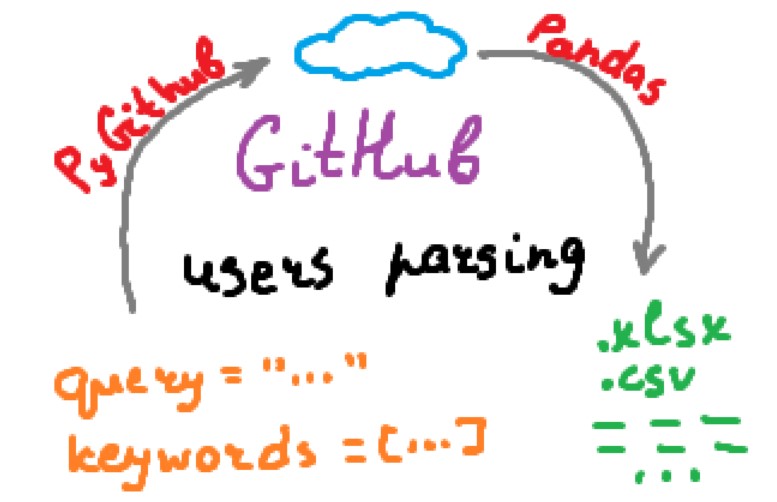 PyGithub
Pandas
GitHub
users parsing
query = "..."
keywords = [...]
.xlsx
.csv
...